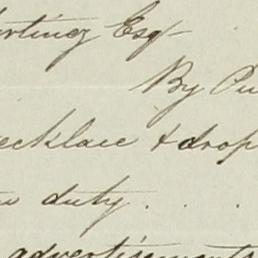 Esq
By
necklace & drop
duty . . .
advertisements